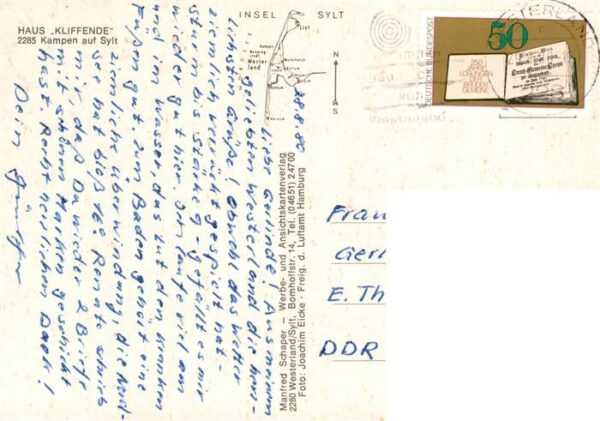 HAUS „KLIFFENDE"
2285 Kampen auf Sylt
INSEL SYLT
List
Kampen
Wester-
land
N
S
DEUTSCHE BUNDESPOST
50
250
JAHRE
LOSUNGEN
DER
BRÜDER-
GEMEINE
WESTERLAND
Westerland
28.8.80
Liebe Gerda! Aus meinem
geliebten Westerland die herz-
lichsten Grüße! Obwohl das Wetter
ziemlich verrückt gespielt hat -
stürmisch, sonnig gefällt es mir
wieder gut hier. Ich laufe viel am
und im Wasser, das tut den kranken
Füßen gut. Zum Baden gehört eine
ziemliche Überwindung, die Nord-
see hat bloß 16°. Renate schrieb
mir, daß Du wieder 2 Briefe
mit schönen Marken geschickt
hast. Recht herzlichen Dank!
Dein
Manfred Schaper – Werbe- und Ansichtskartenverlag
2280 Westerland/Sylt, Bomhoffstr. 14, Tel. (04651) 24700
Foto: Joachim Eicke · Freig. d. Luftamt Hamburg
Frau
Ger
E. Th
DDR